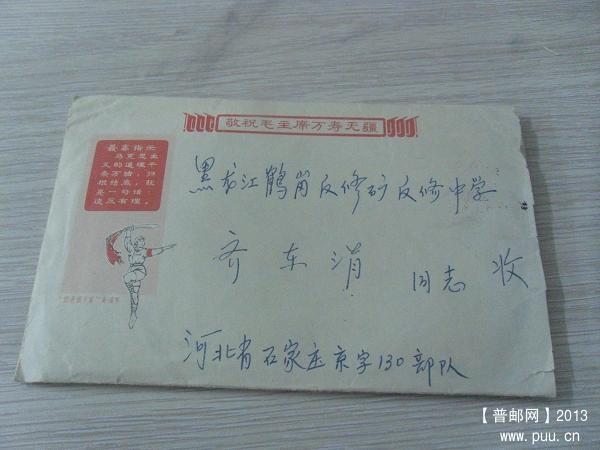 敬祝毛主席万寿无疆
最高指示
马克思主
义的道理千
条万绪，归
根结底，就
是一句话：
造反有理。
黑龙江鹤岗反修矿反修中学
齐东涓 同志 收
河北省石家庄京字130部队
【普邮网】2013
www.puu.cn